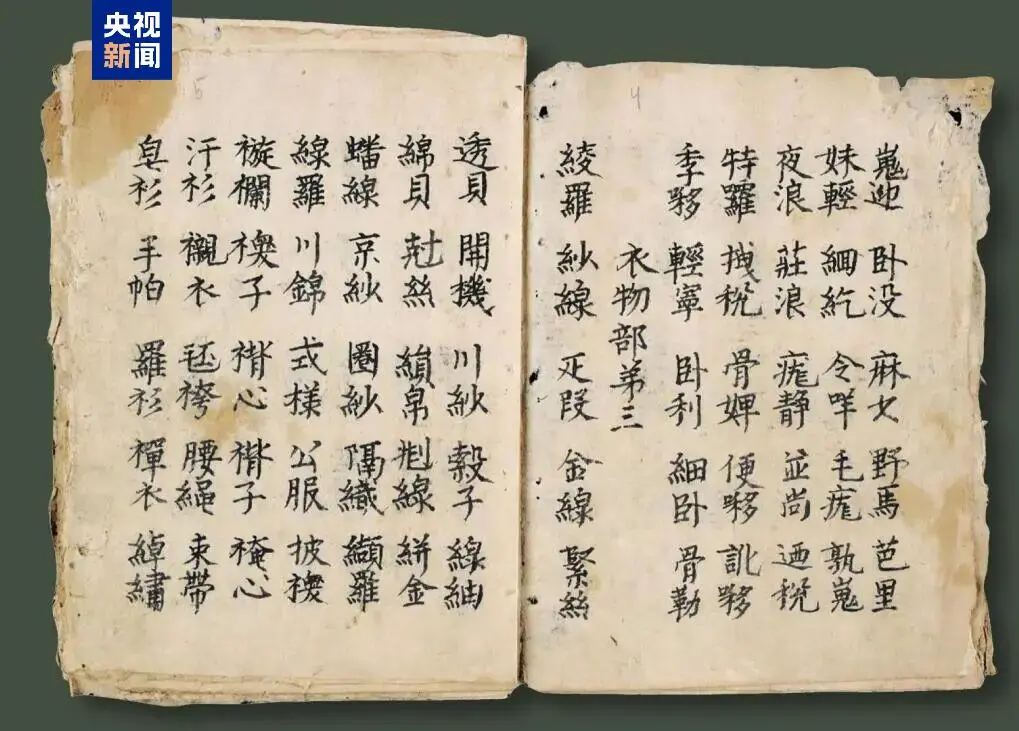 央视
新闻
4
嵬迎 卧没 麻女 野馬 芭里
妹輕 緬紇 令咩 毛痝 埶嵬
夜浪 莊浪 痝静 並尚 迺税
特羅 拽税 骨婢 便 訛
季 輕寧 卧利 細卧 骨勒
衣物部第三
綾羅 紗線 疋段 金線 緊絲
5
透貝 開機 川紗 縠子 線紬
綿貝 尅絲 絹帛 線 絣金
蟠線 京紗 圈紗 隔織 纈羅
線羅 川錦 式樣 公服 披襖
襴 襖子 褙心 褙子 裺心
汗衫 襯衣 毡袴 腰繩 束帶
皂衫 手帕 羅衫 襌衣 綽繡